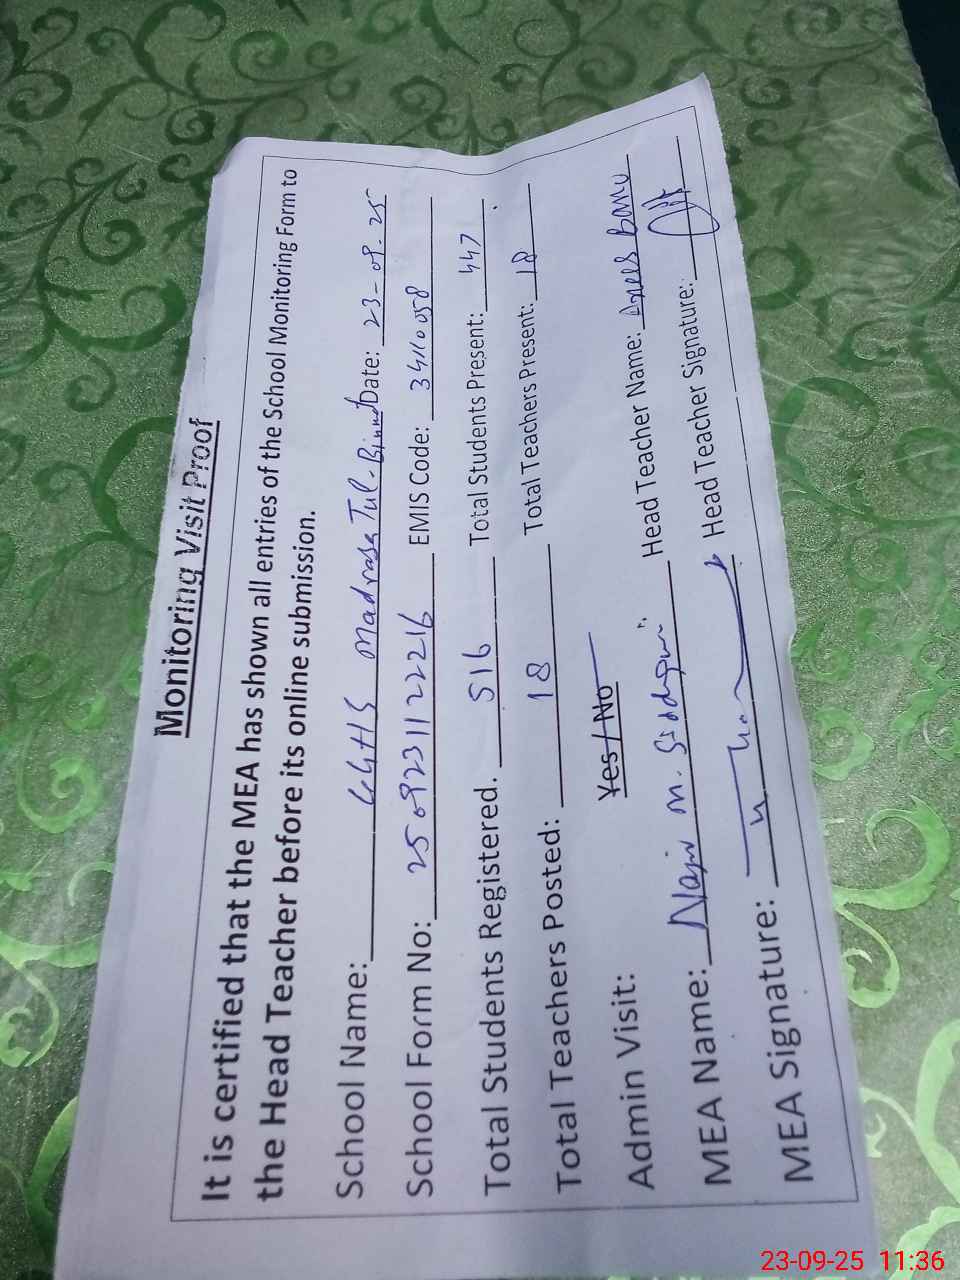 Monitoring Visit Proof
It is certified that the MEA has shown all entries of the School Monitoring Form to
the Head Teacher before its online submission.
School Name: GGHS Madrasa Tul-Binnat Date: 23-09-25
School Form No: 2509231122216 EMIS Code: 34110058
Total Students Registered. 516 Total Students Present: 447
Total Teachers Posted: 18 Total Teachers Present: 18
Admin Visit: Yes / No
MEA Name: M. Head Teacher Name: Anees Bano
MEA Signature: Head Teacher Signature:
23-09-25 11:36